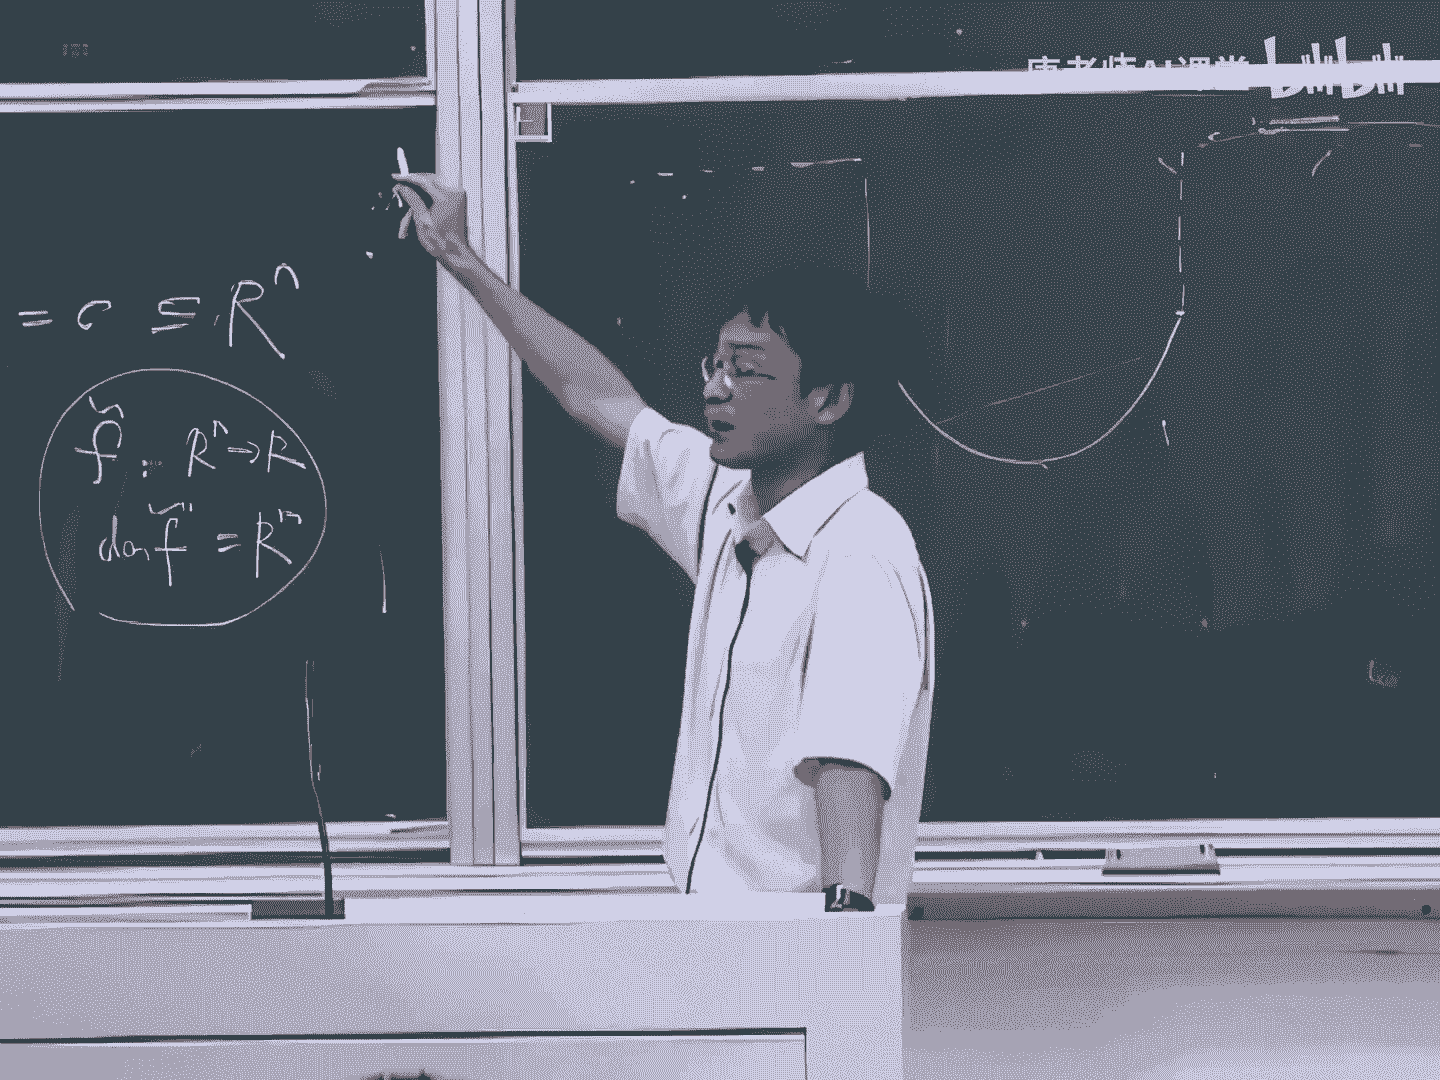 唐老师AI课堂 bilibili
= C ⊆ Rⁿ
f̃ : Rⁿ → R
dom f̃ = Rⁿ